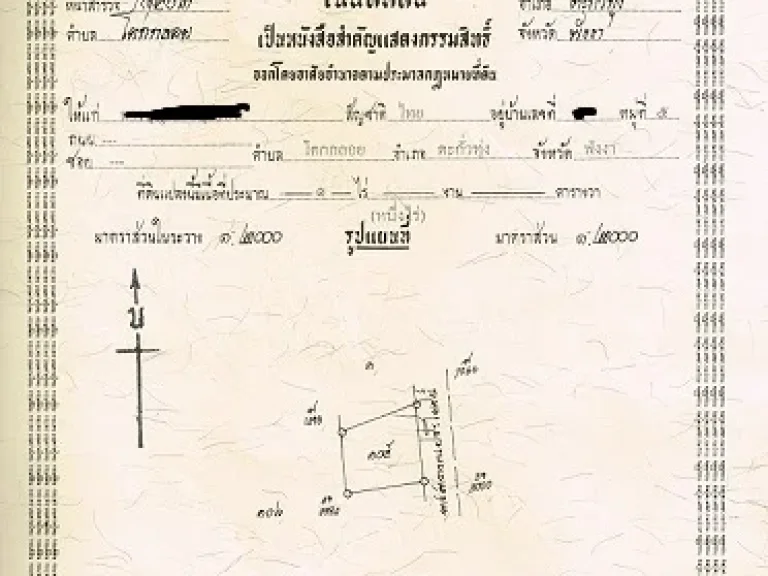 หน้าสำรวจ
อำเภอ ตะกั่วทุ่ง
ตำบล โคกกลอย
จังหวัด พังงา
เป็นหนังสือสำคัญแสดงกรรมสิทธิ์
ออกโดยอาศัยอำนาจตามประมวลกฎหมายที่ดิน
ให้แก่ สัญชาติ ไทย อยู่บ้านเลขที่ หมู่ที่ ๕
ถนน ---
ซอย --- ตำบล โคกกลอย อำเภอ ตะกั่วทุ่ง จังหวัด พังงา
ที่ดินแปลงนี้มีเนื้อที่ประมาณ ๑ ไร่ งาน ตารางวา
(หนึ่งไร่)
มาตราส่วนในระวาง ๑:๒๐๐๐ รูปแผนที่ มาตราส่วน ๑:๒๐๐๐
น